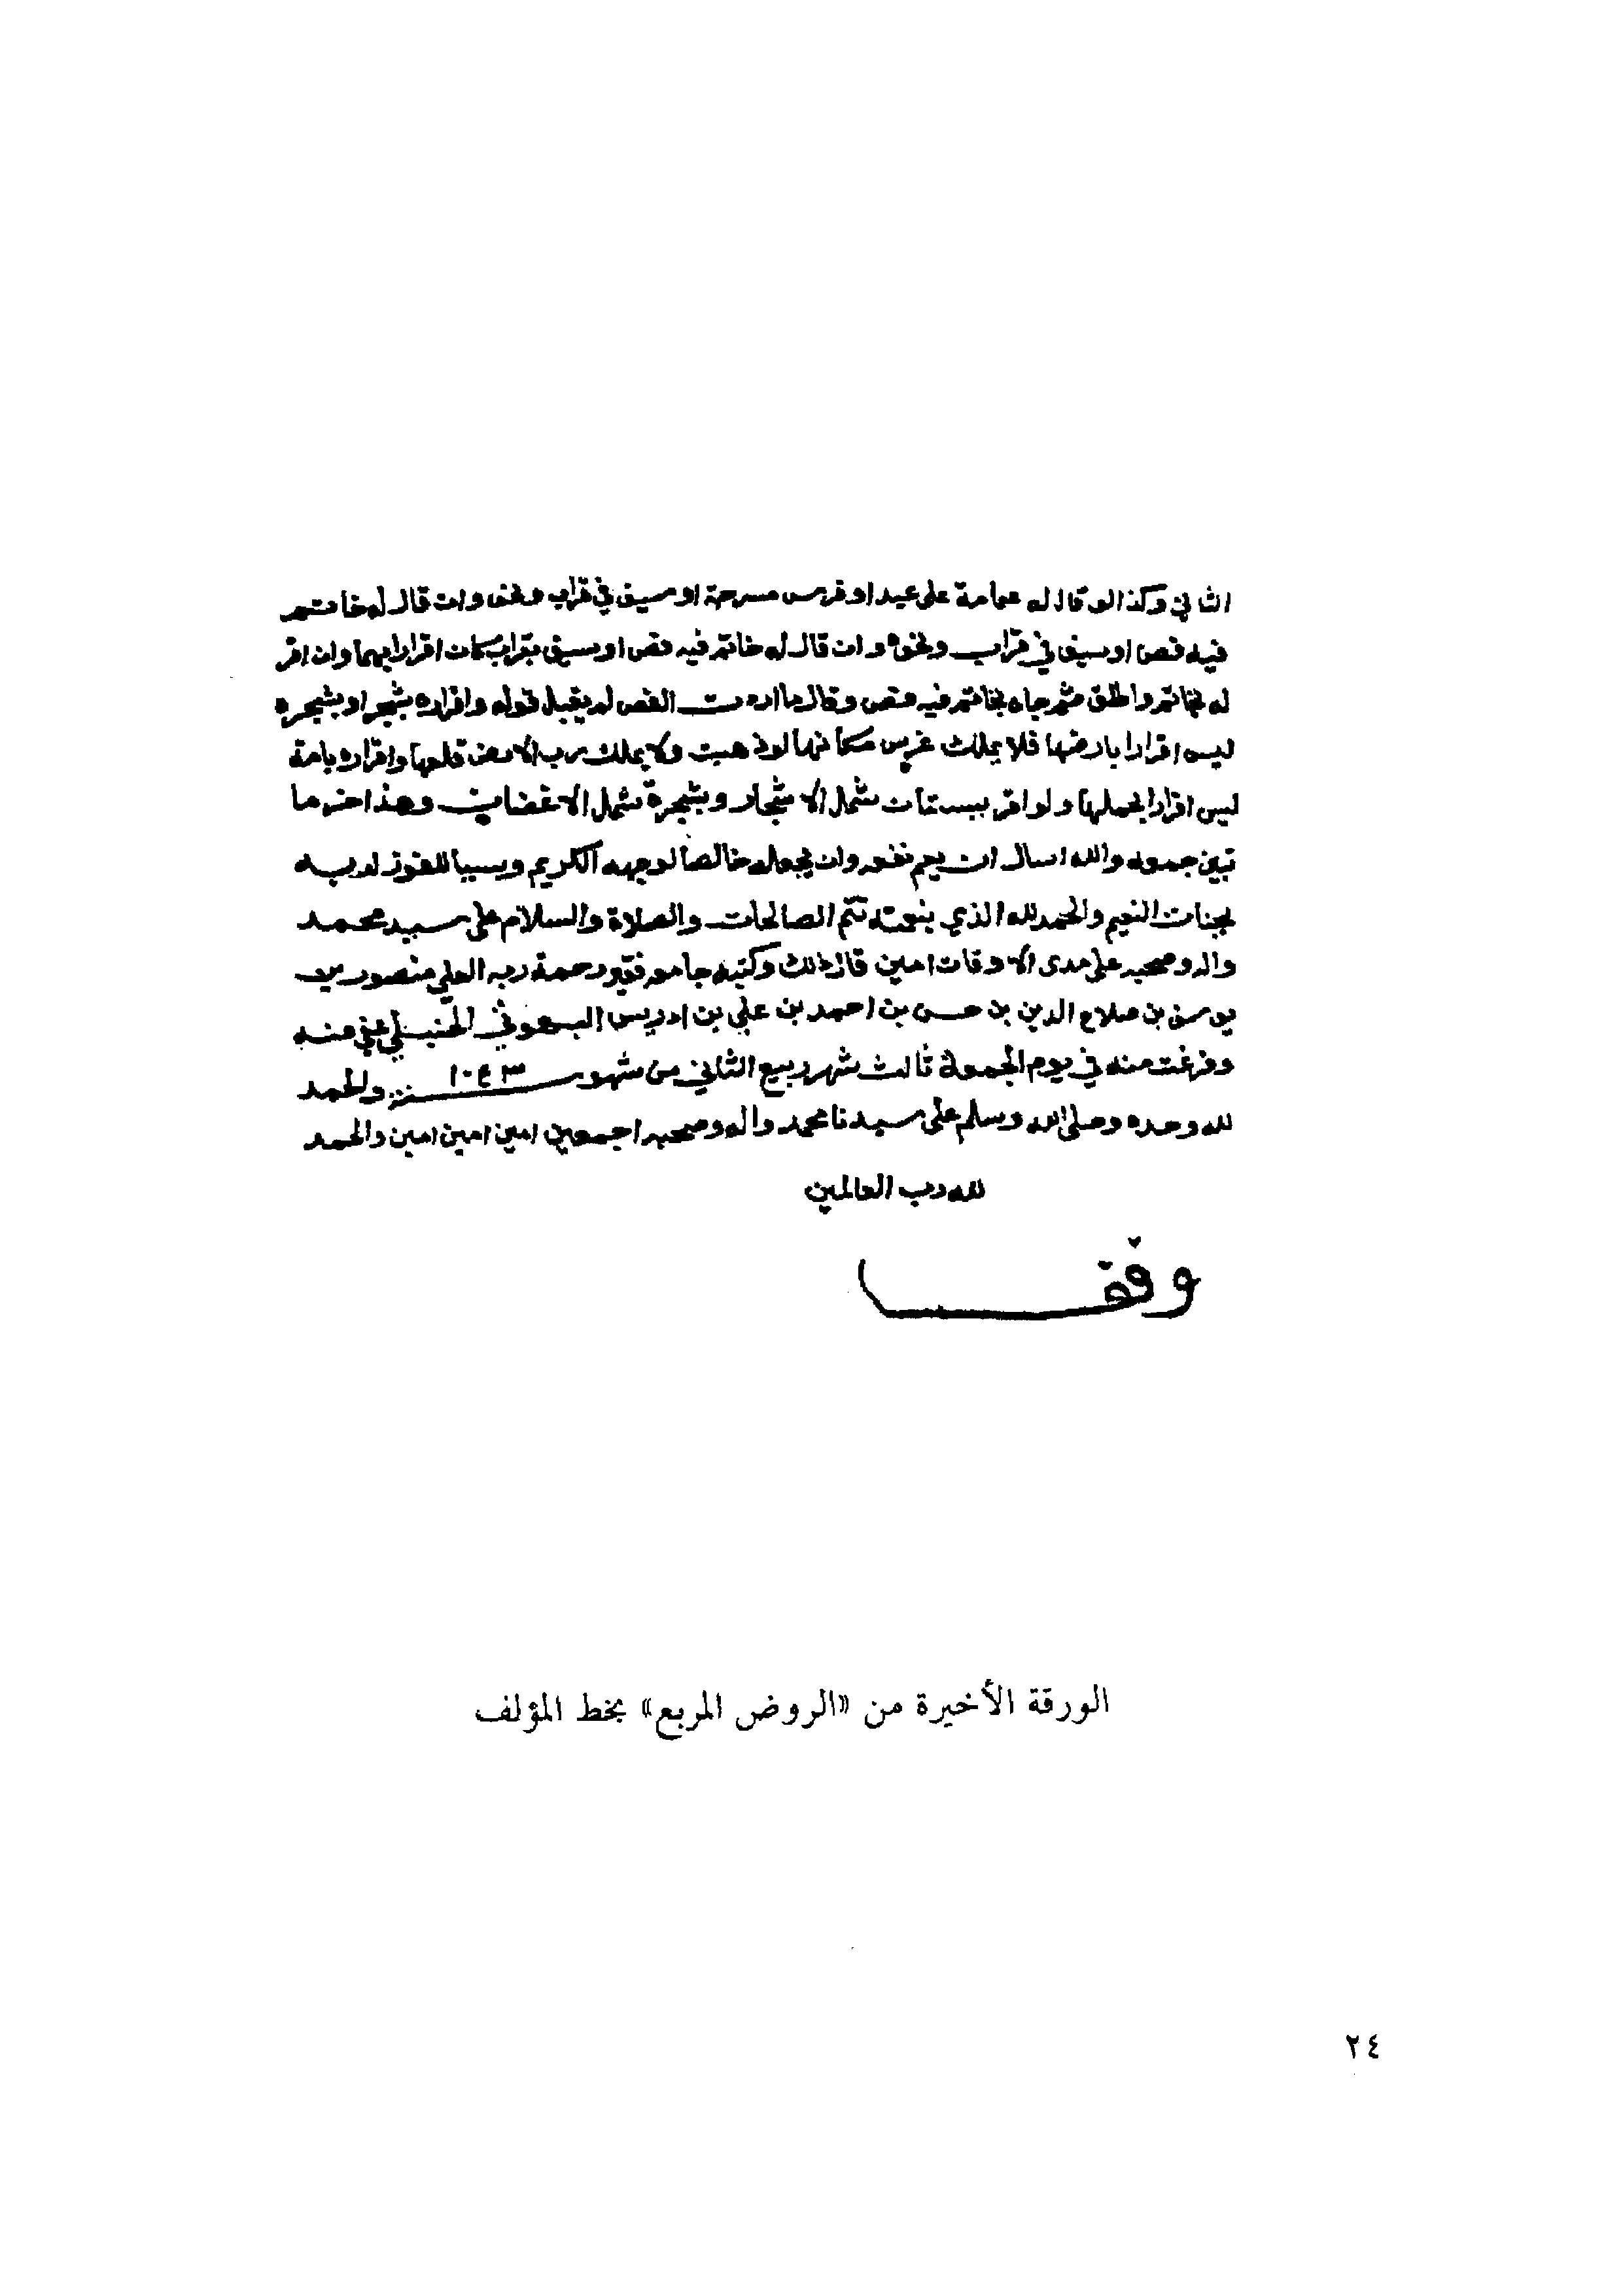 الثاني وكذا لو قال له عمامة على عبد او فرس مسرجة او سيف في قرابه ونحوه وان قال له خاتم
فيه فص او سيف في قراب ونحوه وان قال له خاتم فيه فص او سيف بقراب كان اقرارا بهما وان اقر
له بخاتم واطلق ثم جاه بخاتم فيه فص وقال ما اردت الفص لم يقبل قوله واقراره بشجر او بشجرة
ليس اقرارا بارضها فلا يملك غرس مكانها لو ذهبت ولا يملك رب الارض قلعها واقراره بامة
ليس اقرارا بحملها ولو اقر ببستان شمل الاشجار وبشجرة شمل الاغصان وهذا اخر ما
تيسر جمعه والله اسال ان يعم نفعه وان يجعله خالصا لوجهه الكريم وسببا للفوز لديه
بجنات النعيم والحمد لله الذي بنعمته تتم الصالحات والصلاة والسلام على سيد محمد
واله وصحبه على مدى الاوقات امين قال ذلك وكتبه جامعه فقير رحمة ربه العلي منصور بن
يوسف بن صلاح الدين بن حسن بن احمد بن علي بن ادريس البهوتي الحنبلي عفي عنه
وفرغت منه في يوم الجمعة ثالث شهر ربيع الثاني من شهور سنة ١٠٤٣ والحمد
لله وحده وصلى الله وسلم على سيدنا محمد واله وصحبه اجمعين امين امين امين والحمد
لله رب العالمين
وقف
الورقة الأخيرة من «الروض المربع» بخط المؤلف
٢٤